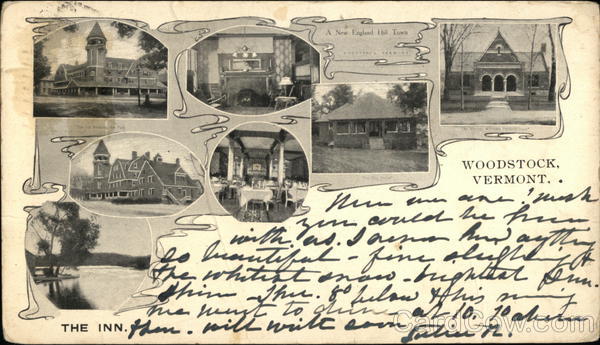 A New England Hill Town
WOODSTOCK,
VERMONT.
Here we are! wish
you could be here
with us. I never saw anything
so beautiful - fine sleighing &
the whitest snow. brightest sun.
shine. Thu. 8° below & this morning
we went to drive at 10, 10 above
then. will write soon
THE INN.
CardCow.com